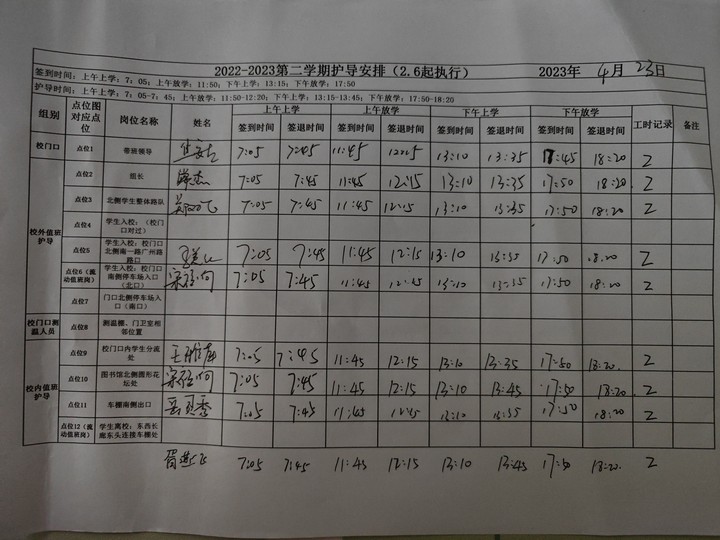 2022-2023第二学期护导安排（2.6起执行） 2023年 4月 23日
签到时间：上午上学：7：05；上午放学：11:50；下午上学：13:15；下午放学：17:50
护导时间：上午上学：7：05-7：45；上午放学：11:50-12:20；下午上学：13:15-13:45；下午放学：17:50-18:20
组别 点位图对应点位 岗位名称 姓名 上午上学 上午放学 下午上学 下午放学 工时记录 备注
签到时间 签退时间 签到时间 签退时间 签到时间 签退时间 签到时间 签退时间
校门口 点位1 带班领导 7:05 7:45 11:45 13:10 13:35 17:45 18:20 2
校外值班护导
点位2 组长 7:05 7:45 11:45 12:15 13:10 13:35 17:50 18:20 2
点位3 北侧学生整体路队 7:05 7:45 11:45 12:15 13:10 13:35 17:50 18:20 2
点位4 学生入校：（校门口对过）
点位5 学生入校：校门口北侧南一路广州路路口 7:05 7:45 11:45 12:15 13:10 13:35 17:50 18:20 2
点位6（流动值班岗） 学生入校：校门口南侧停车场入口（北口） 7:05 7:45 11:45 12:15 13:10 13:35 17:50 18:20 2
点位7 门口北侧停车场入口（南口）
校门口测温人员 点位8 测温棚、门卫室相邻位置
校内值班护导
点位9 校门口内学生分流处 7:05 7:45 11:45 12:15 13:10 13:35 17:50 18:20 2
点位10 图书馆北侧圆形花坛处 7:05 7:45 11:45 12:15 13:10 13:45 17:50 18:20 2
点位11 车棚南侧出口 7:05 7:45 11:45 12:15 13:10 13:35 17:50 18:20 2
点位12（流动值班岗） 学生离校：东西长廊东头连接车棚处
7:05 7:45 11:45 12:15 13:10 13:45 17:50 18:20 2